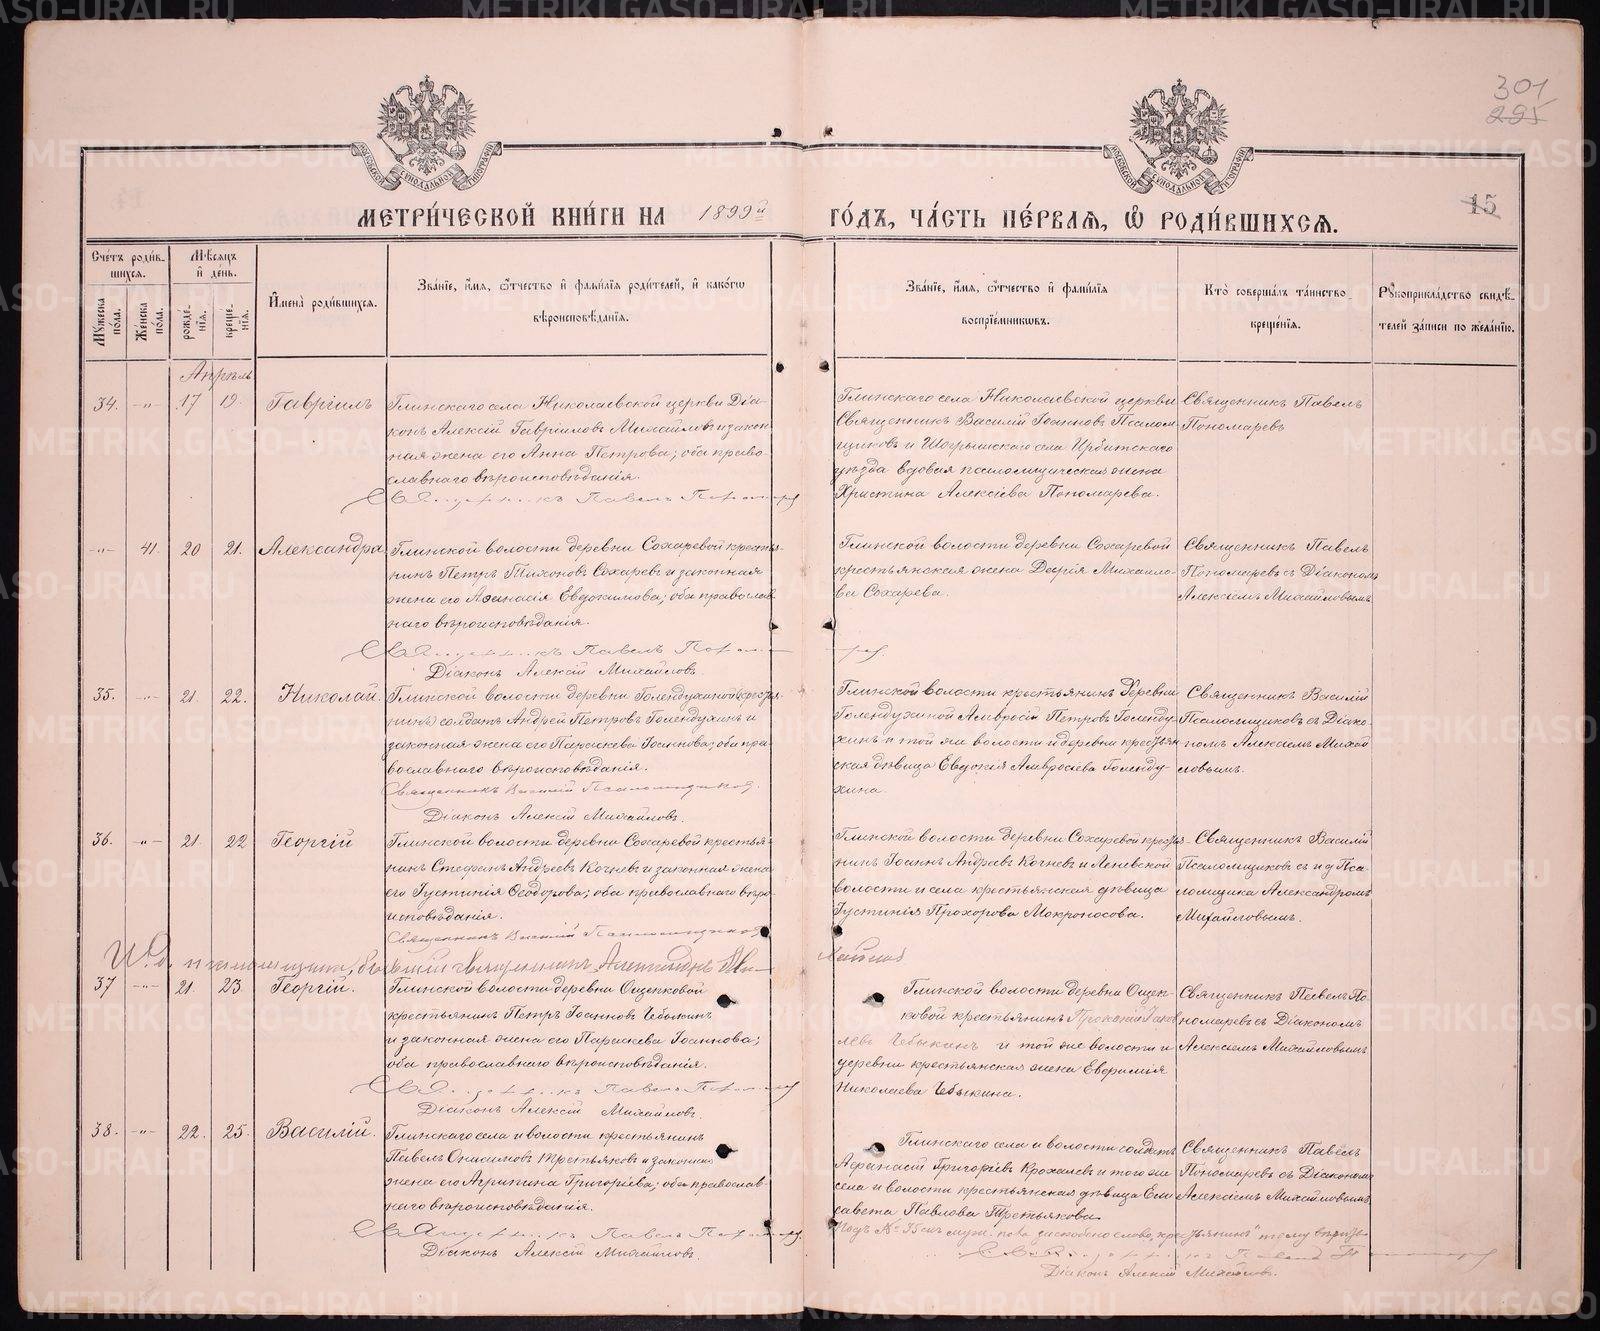 301
295
15
МОСКОВСКОЙ СУНОДАЛЬНОЙ ТИПОГРАФІИ
МОСКОВСКОЙ СУНОДАЛЬНОЙ ТИПОГРАФІИ
МЕТРИ́ЧЕСКОЙ КНИ́ГИ НА 1899й ГО́ДЪ, ЧА́СТЬ ПЕ́РВАЯ, Ѽ РОДИ́ВШИХСЯ.
Сче́тъ роди́в-
шихся.
Мѣ́сяцъ
и҆ де́нь.
Мꙋ́жеска
по́ла.
Же́нска
по́ла.
рожде́-
нїѧ.
креще́-
нїѧ.
И҆мена̀ роди́вшихся.
Зва́нїе, и҆́мя, ѻ҆́тчество и҆ фами́лїѧ роди́телей, и҆ како́гѡ
вѣроисповѣ́данїѧ.
Зва́нїе, и҆́мя, ѻ҆́тчество и҆ фами́лїѧ
воспрїе́мникѡвъ.
Кто̀ соверша́лъ та́инство
креще́нїѧ.
Рꙋкоприкла́дство свидѣ́-
телей за́писи по жела́нїю.
Апрѣль
34. -"- 17 19. Гавріилъ
Глинскаго села Николаевской церкви Діа-
конъ Алексій Гавріиловъ Михайловъ и закон
ная жена его Анна Петрова; оба право-
славнаго вѣроисповѣданія.
Священникъ Павелъ Пономарев
Глинскаго села Николаевской церкви
Священникъ Василій Іоанновъ Псалом-
щиковъ и Шогрышскаго села Ирбитскаго
уѣзда вдовая псаломщическая жена
Христина Алексіева Пономарева.
Священникъ Павелъ
Пономаревъ
-"- 41. 20 21. Александра
Глинской волости деревни Сохаревой кресть-
нинъ Петръ Тихоновъ Сохаревъ и законная
жена его Аѳанасія Евдокимова; оба православ
наго вѣроисповѣданія.
Священникъ Павелъ Пономарев.
Діаконъ Алексій Михайловъ.
Глинской волости деревни Сохаревой
крестьянская жена Дарія Михаило-
ва Сохарева.
Священникъ Павелъ
Пономаревъ съ Діакономъ
Алексіемъ Михайловымъ
35. -"- 21. 22. Николай.
Глинской волости деревни Голендухиной (кресья-
нинъ) солдатъ Андрей Петровъ Голендухинъ и
законная жена его Параскева Іоаннова; оба пра-
вославнаго вѣроисповѣданія.
Священникъ Василій Псаломщиков.
Діаконъ Алексій Михайловъ.
Глинской волости крестьянинъ деревни
Голендухиной Амвросій Петровъ Голенду-
хинъ и той же волости и деревни крестьян
ская дѣвица Евдокія Амвросіева Голенду-
хина.
Священникъ Василій
Псаломщиковъ съ Діако-
номъ Алексіемъ Михай
ловымъ.
36. -"- 21. 22 Георгій
Глинской волости деревни Сохаревой крестья-
нинъ Стефанъ Андреевъ Кочневъ и законная жена
его Іустинія Ѳеодорова; оба православнаго вѣро-
исповѣданія.
Священникъ Василій Псаломщиков
И.д. псаломщика, бывшій священникъ Александръ Михайлов
Глинской волости деревни Сохаревой кресть-
нинъ Іоаннъ Андреевъ Кочневъ и Леневской
волости и села крестьянская дѣвица
Іустинія Прохорова Мокроносова.
Священникъ Василій
Псаломщиковъ съ и д Пса-
ломщика Александромъ
Михайловымъ.
37 -"- 21. 23 Георгій.
Глинской волости деревни Ощепковой
крестьянинъ Петръ Іоанновъ Чебыкинъ
и законная жена его Параскева Іоаннова;
оба православнаго вѣроисповѣданія.
Священникъ Павелъ Пономарев
Діаконъ Алексій Михайловъ.
Глинской волости деревни Ощеп-
ковой крестьянинъ Прокопій Іаков
левъ Чебыкинъ и той же волости и
деревни крестьянская жена Евфимія
Николаева Чебыкина.
Священникъ Павелъ По-
номаревъ съ Діакономъ
Алексіемъ Михайловымъ
38. -"- 22. 25. Василій.
Глинскаго села и волости крестьянинъ
Павелъ Онисимовъ Третьяковъ и законная
жена его Агрипина Григоріева; оба православ-
наго вѣроисповѣданія.
Священникъ Павелъ Пономарев.
Діаконъ Алексій Михайловъ.
Глинскаго села и волости солдатъ
Аѳанасій Григоріевъ Крохалевъ и того же
села и волости крестьянская дѣвица Ели
савета Павлова Третьякова
Священникъ Павелъ
Пономаревъ съ Діакономъ
Алексіемъ Михайловымъ
Подъ № 35 муж. пола заскоблено слово „крестьянинъ" тому вѣрить
Священникъ Павелъ
Діаконъ Алексій Михайловъ.
METRIKI.GASO-URAL.RU